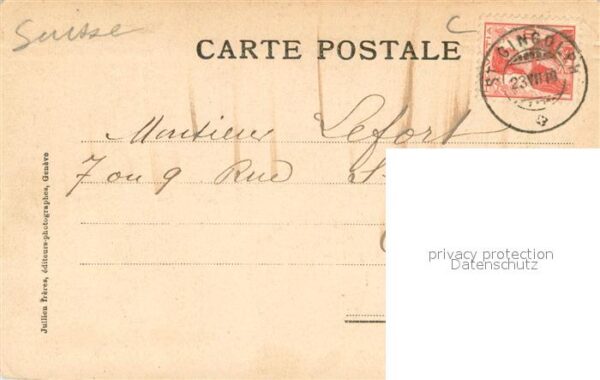 Suisse
C
CARTE POSTALE
ST GINGOLPH
23 VII 10
Monsieur Lefort
7 ou 9 Rue S
Jullien frères, éditeurs-photographes, Genève
privacy protection
Datenschutz